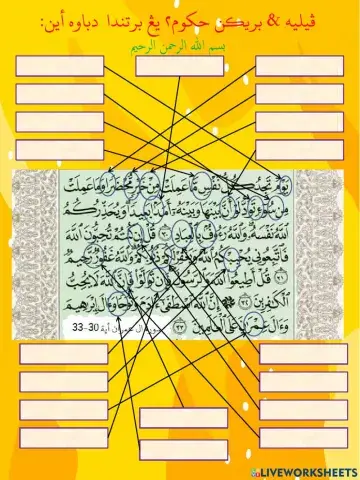 ڤيليه & بريكن حكوم٢ يڠ برتندا دباوه أين:
بسم الله الرحمن الرحيم
يَوْمَ تَجِدُ كُلُّ نَفْسٍ مَّا عَمِلَتْ مِنْ خَيْرٍ مُّحْضَرًا وَمَا عَمِلَتْ
مِن سُوٓءٍ تَوَدُّ لَوْ أَنَّ بَيْنَهَا وَبَيْنَهُۥٓ أَمَدًۢا بَعِيدًا وَيُحَذِّرُكُمُ
ٱللَّهُ نَفْسَهُۥ وَٱللَّهُ رَءُوفٌۢ بِٱلْعِبَادِ ٣٠ قُلْ إِن كُنتُمْ تُحِبُّونَ ٱللَّهَ
فَٱتَّبِعُونِى يُحْبِبْكُمُ ٱللَّهُ وَيَغْفِرْ لَكُمْ ذُنُوبَكُمْ وَٱللَّهُ غَفُورٌ رَّحِيمٌ
٣١ قُلْ أَطِيعُوا۟ ٱللَّهَ وَٱلرَّسُولَ فَإِن تَوَلَّوْا۟ فَإِنَّ ٱللَّهَ لَا يُحِبُّ
ٱلْكَٰفِرِينَ ٣٢ إِنَّ ٱللَّهَ ٱصْطَفَىٰٓ ءَادَمَ وَنُوحًا وَءَالَ إِبْرَٰهِيمَ
وَءَالَ عِمْرَٰنَ عَلَى ٱلْعَٰلَمِينَ ٣٣
سورة ال عمران أية 30-33
LIVEWORKSHEETS